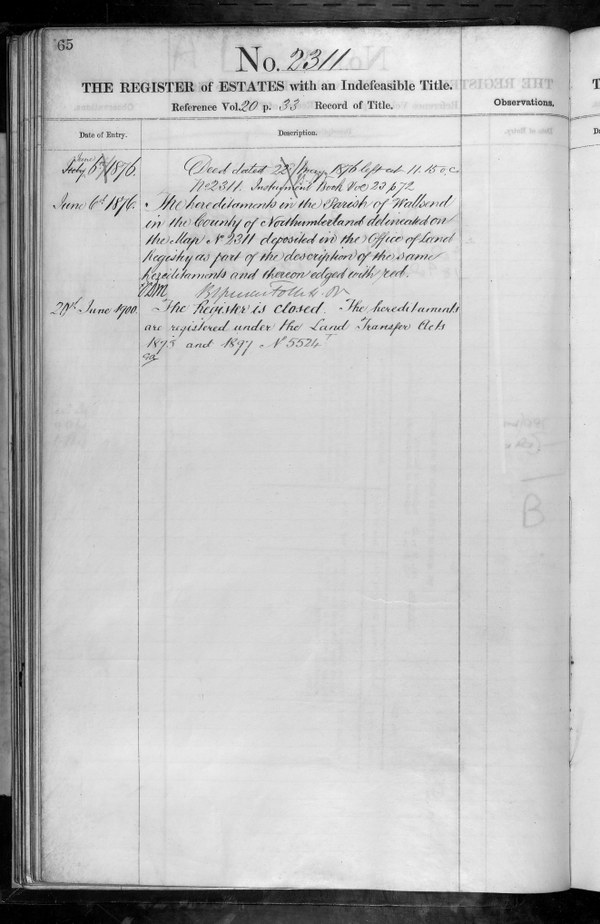 65
No. 2311
THE REGISTER of ESTATES with an Indefeasible Title.
Reference Vol. 20 p. 33 Record of Title.
Observations.
Date of Entry.
Description.
June
6th 1876.
Deed dated 1876 left at 11.15 o.c.
No 2311. Instrument Book Vol 23 p 72
June 6th 1876.
The hereditaments in the Parish of Wallsend
in the County of Northumberland delineated on
the Map No 2311 deposited in the Office of Land
Registry as part of the description of the same
hereditaments and thereon edged with red.
20th June 1900.
The Register is closed. The hereditaments
are registered under the Land Transfer Acts
1875 and 1897. No 5524